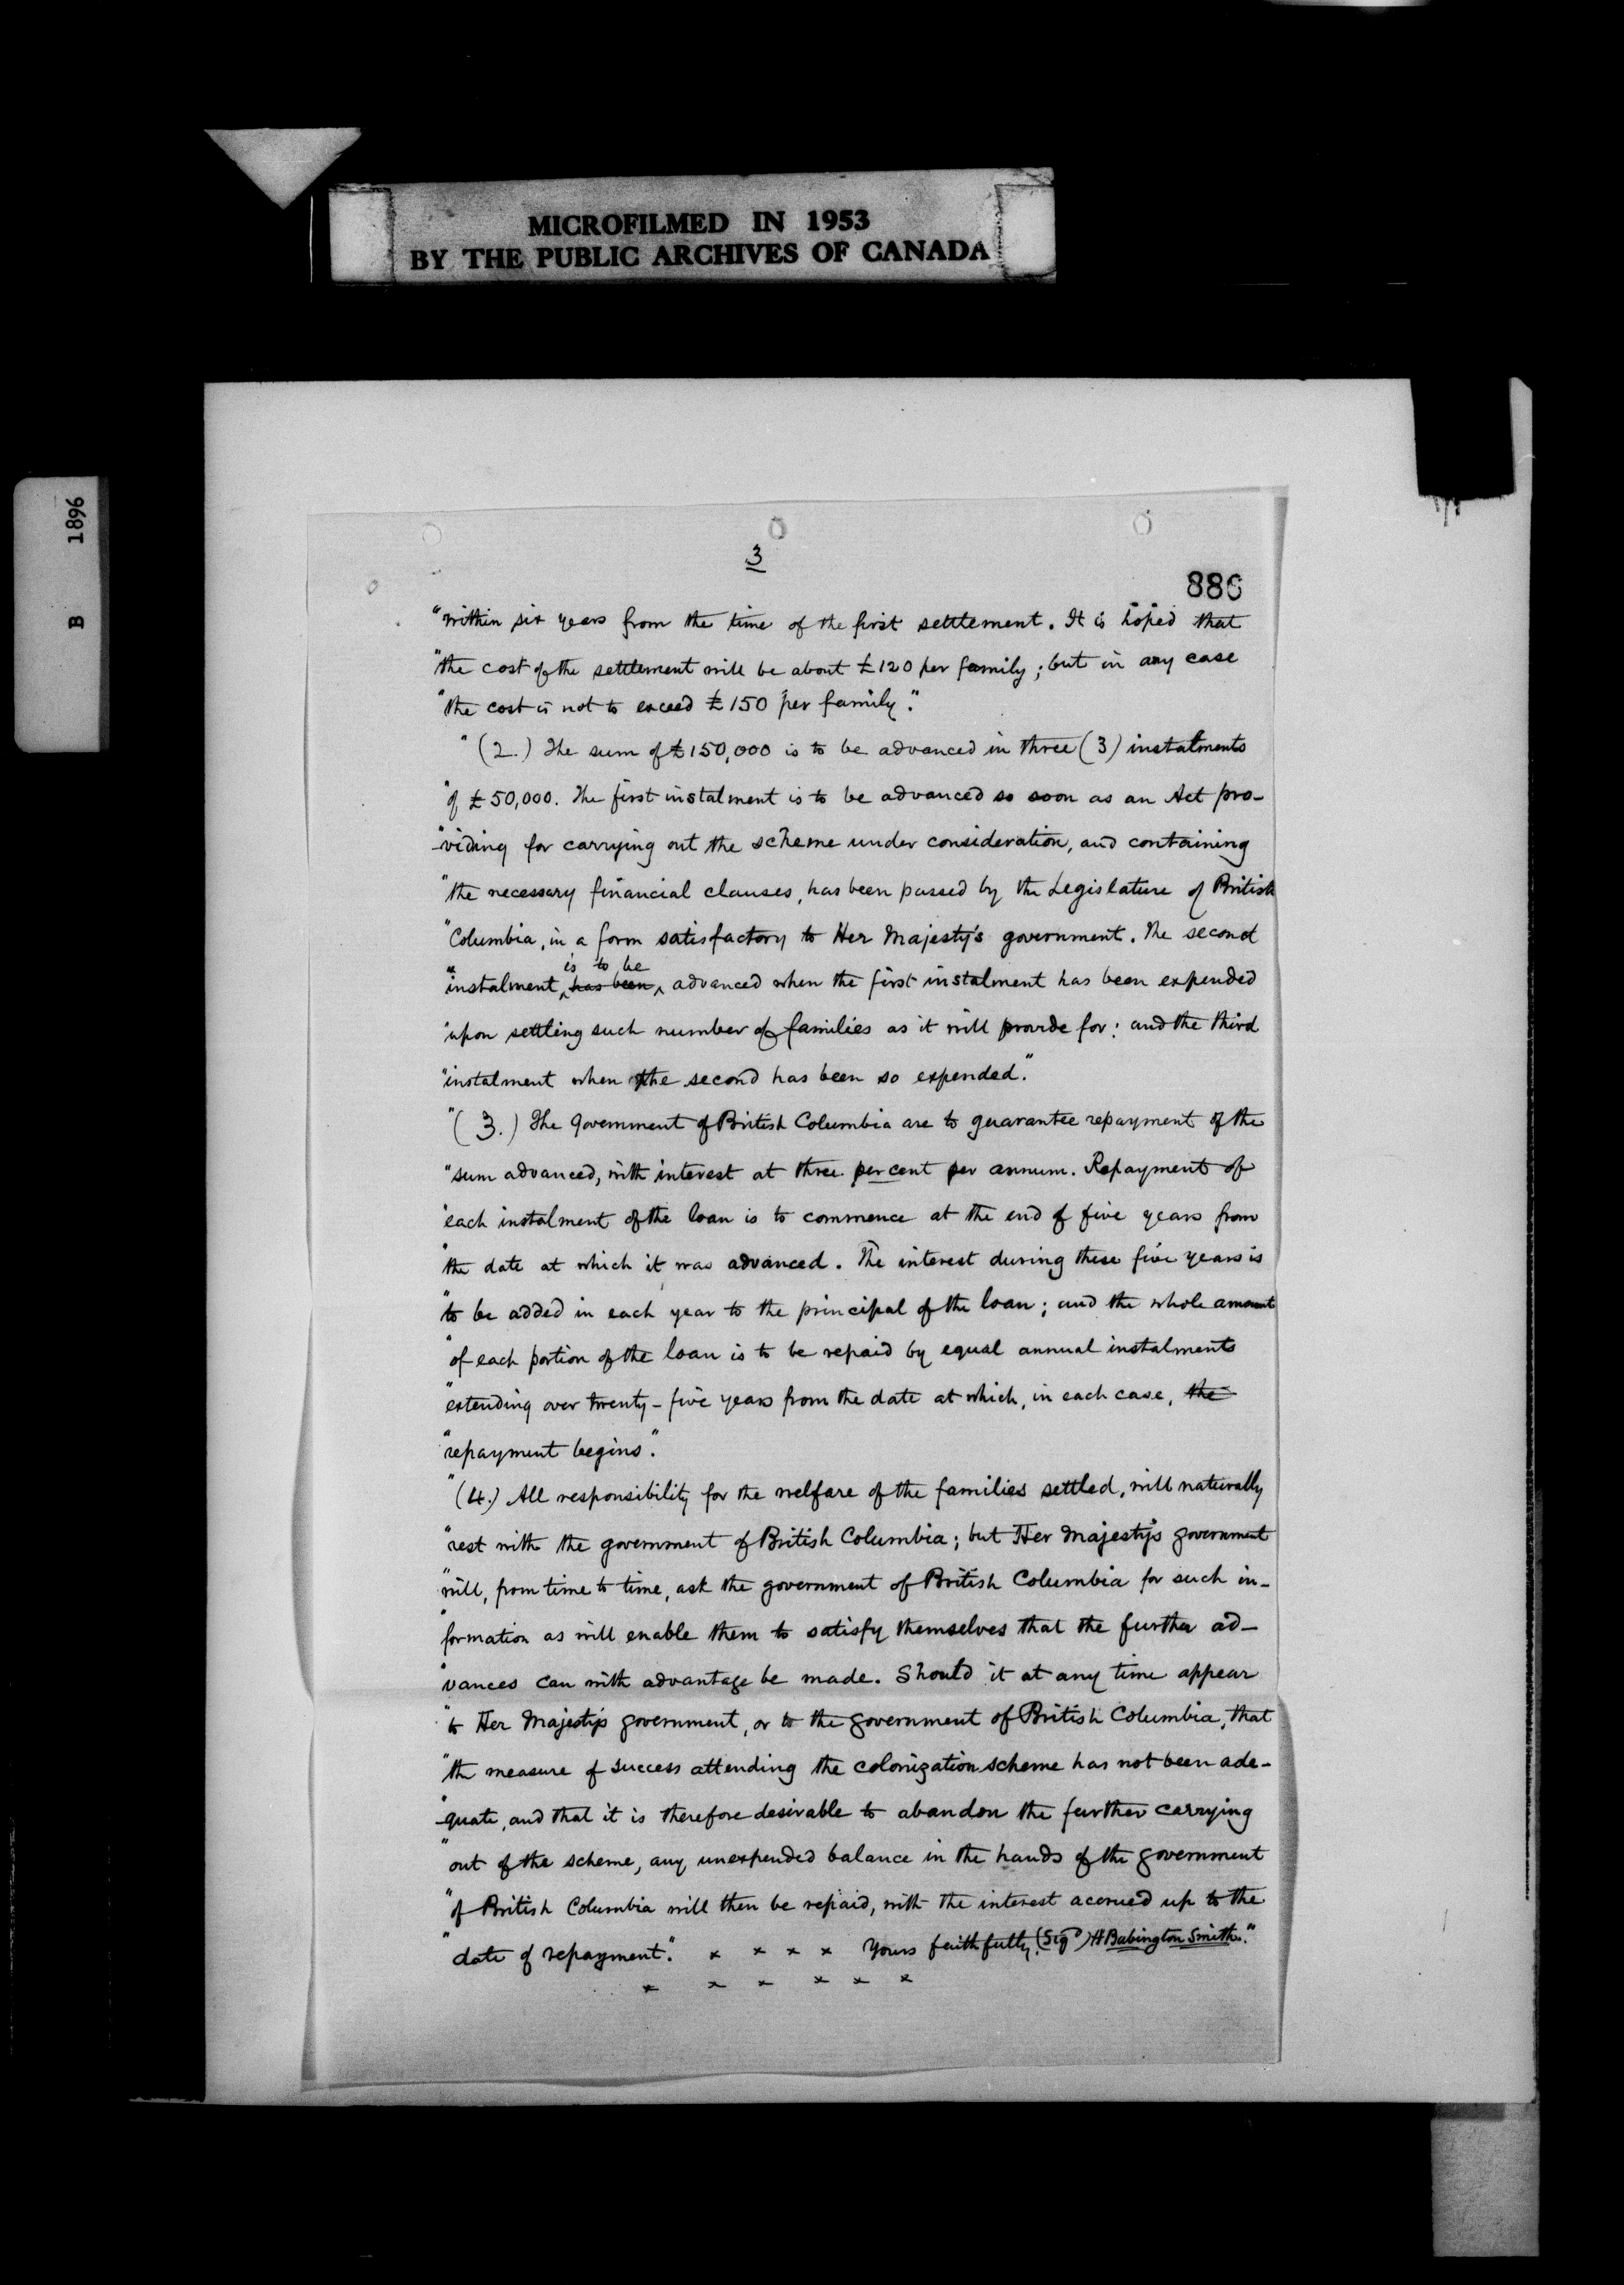 MICROFILMED IN 1953
BY THE PUBLIC ARCHIVES OF CANADA
B 1896
3
886
"within six years from the time of the first settlement. It is hoped that
"the cost of the settlement will be about £120 per family; but in any case
"the cost is not to exceed £150 per family."
"(2.) The sum of £150,000 is to be advanced in three (3) instalments
"of £50,000. The first instalment is to be advanced so soon as an Act pro-
"viding for carrying out the scheme under consideration, and containing
"the necessary financial clauses, has been passed by the Legislature of British
"Columbia, in a form satisfactory to Her Majesty's government. The second
is to be
"instalment has been advanced when the first instalment has been expended
"upon settling such number of families as it will provide for: and the third
"instalment when the second has been so expended."
"(3.) The Government of British Columbia are to guarantee repayment of the
"sum advanced, with interest at three per cent per annum. Repayment of
"each instalment of the loan is to commence at the end of five years from
"the date at which it was advanced. The interest during these five years is
"to be added in each year to the principal of the loan; and the whole amount
"of each portion of the loan is to be repaid by equal annual instalments
"extending over twenty-five years from the date at which, in each case, the
"repayment begins."
"(4.) All responsibility for the welfare of the families settled, will naturally
"rest with the government of British Columbia; but Her Majesty's government
"will, from time to time, ask the government of British Columbia for such in-
"formation as will enable them to satisfy themselves that the further ad-
"vances can with advantage be made. Should it at any time appear
"to Her Majesty's government, or to the government of British Columbia, that
"the measure of success attending the colonization scheme has not been ade-
"quate, and that it is therefore desirable to abandon the further carrying
"out of the scheme, any unexpended balance in the hands of the government
"of British Columbia will then be repaid, with the interest accrued up to the
"date of repayment." x x x x Yours faithfully, (Sigd) H Babington Smith."
x x x x x x